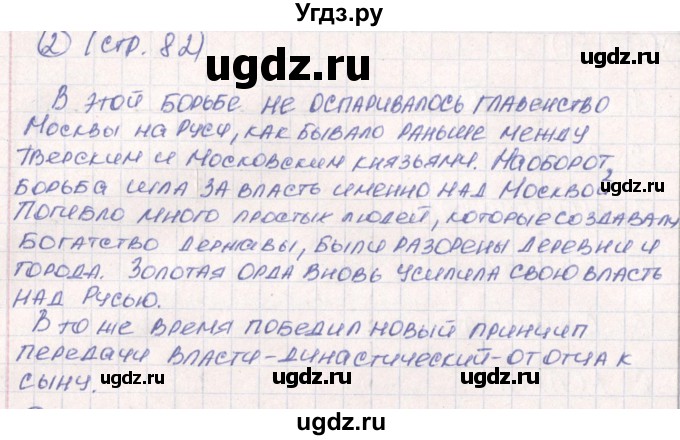 Угдз.ру
(2) (стр. 82)
ugdz.ru ugdz.ru ugdz.ru
В этой борьбе не оспаривалось главенство
Москвы на Руси, как бывало раньше между
Тверским и Московским князьями. Наоборот,
ugdz.ru ugdz.ru ugdz.ru
борьба шла за власть именно над Москвой.
Погибло много простых людей, которые создавали
богатство державы, были разорены деревни и
города. Золотая Орда вновь усилила свою власть
над Русью.
В то же время победил новый принцип
передачи власти-династический-от отца к
сыну.
ugdz.ru ugdz.ru ugdz.ru
ugdz.ru